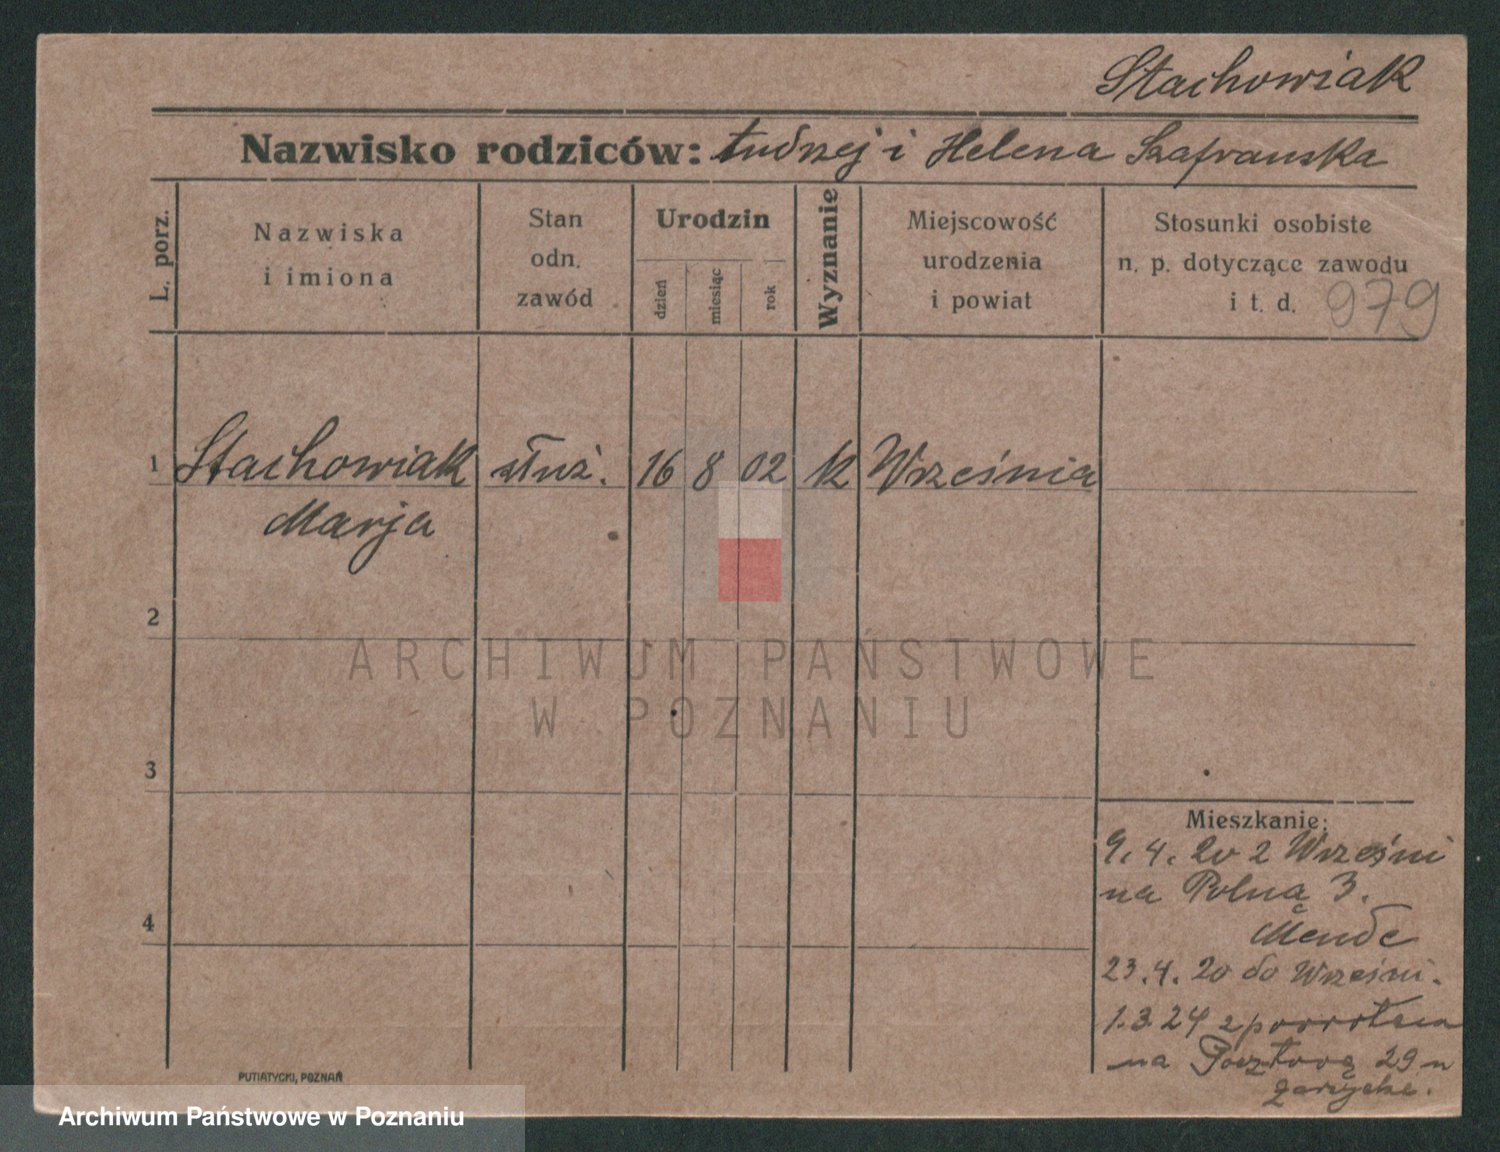 Stachowiak
Nazwisko rodziców: Andrzej i Helena Szafrańska
L. porz.
Nazwiska
i imiona
Stan
odn.
zawód
Urodzin
dzień
miesiąc
rok
Wyznanie
Miejscowość
urodzenia
i powiat
Stosunki osobiste
n. p. dotyczące zawodu
i t. d.
979
1 Stachowiak służ. 16 8 02 k Września
Marja
2
ARCHIWUM PAŃSTWOWE
W POZNANIU
3
4
Mieszkanie:
9. 4. 20 z Wrześni
na Polną 3.
Mende
23. 4. 20 do Wrześni.
1. 3. 24 z
na Pocztową 29
PUTIATYCKI, POZNAŃ
Archiwum Państwowe w Poznaniu